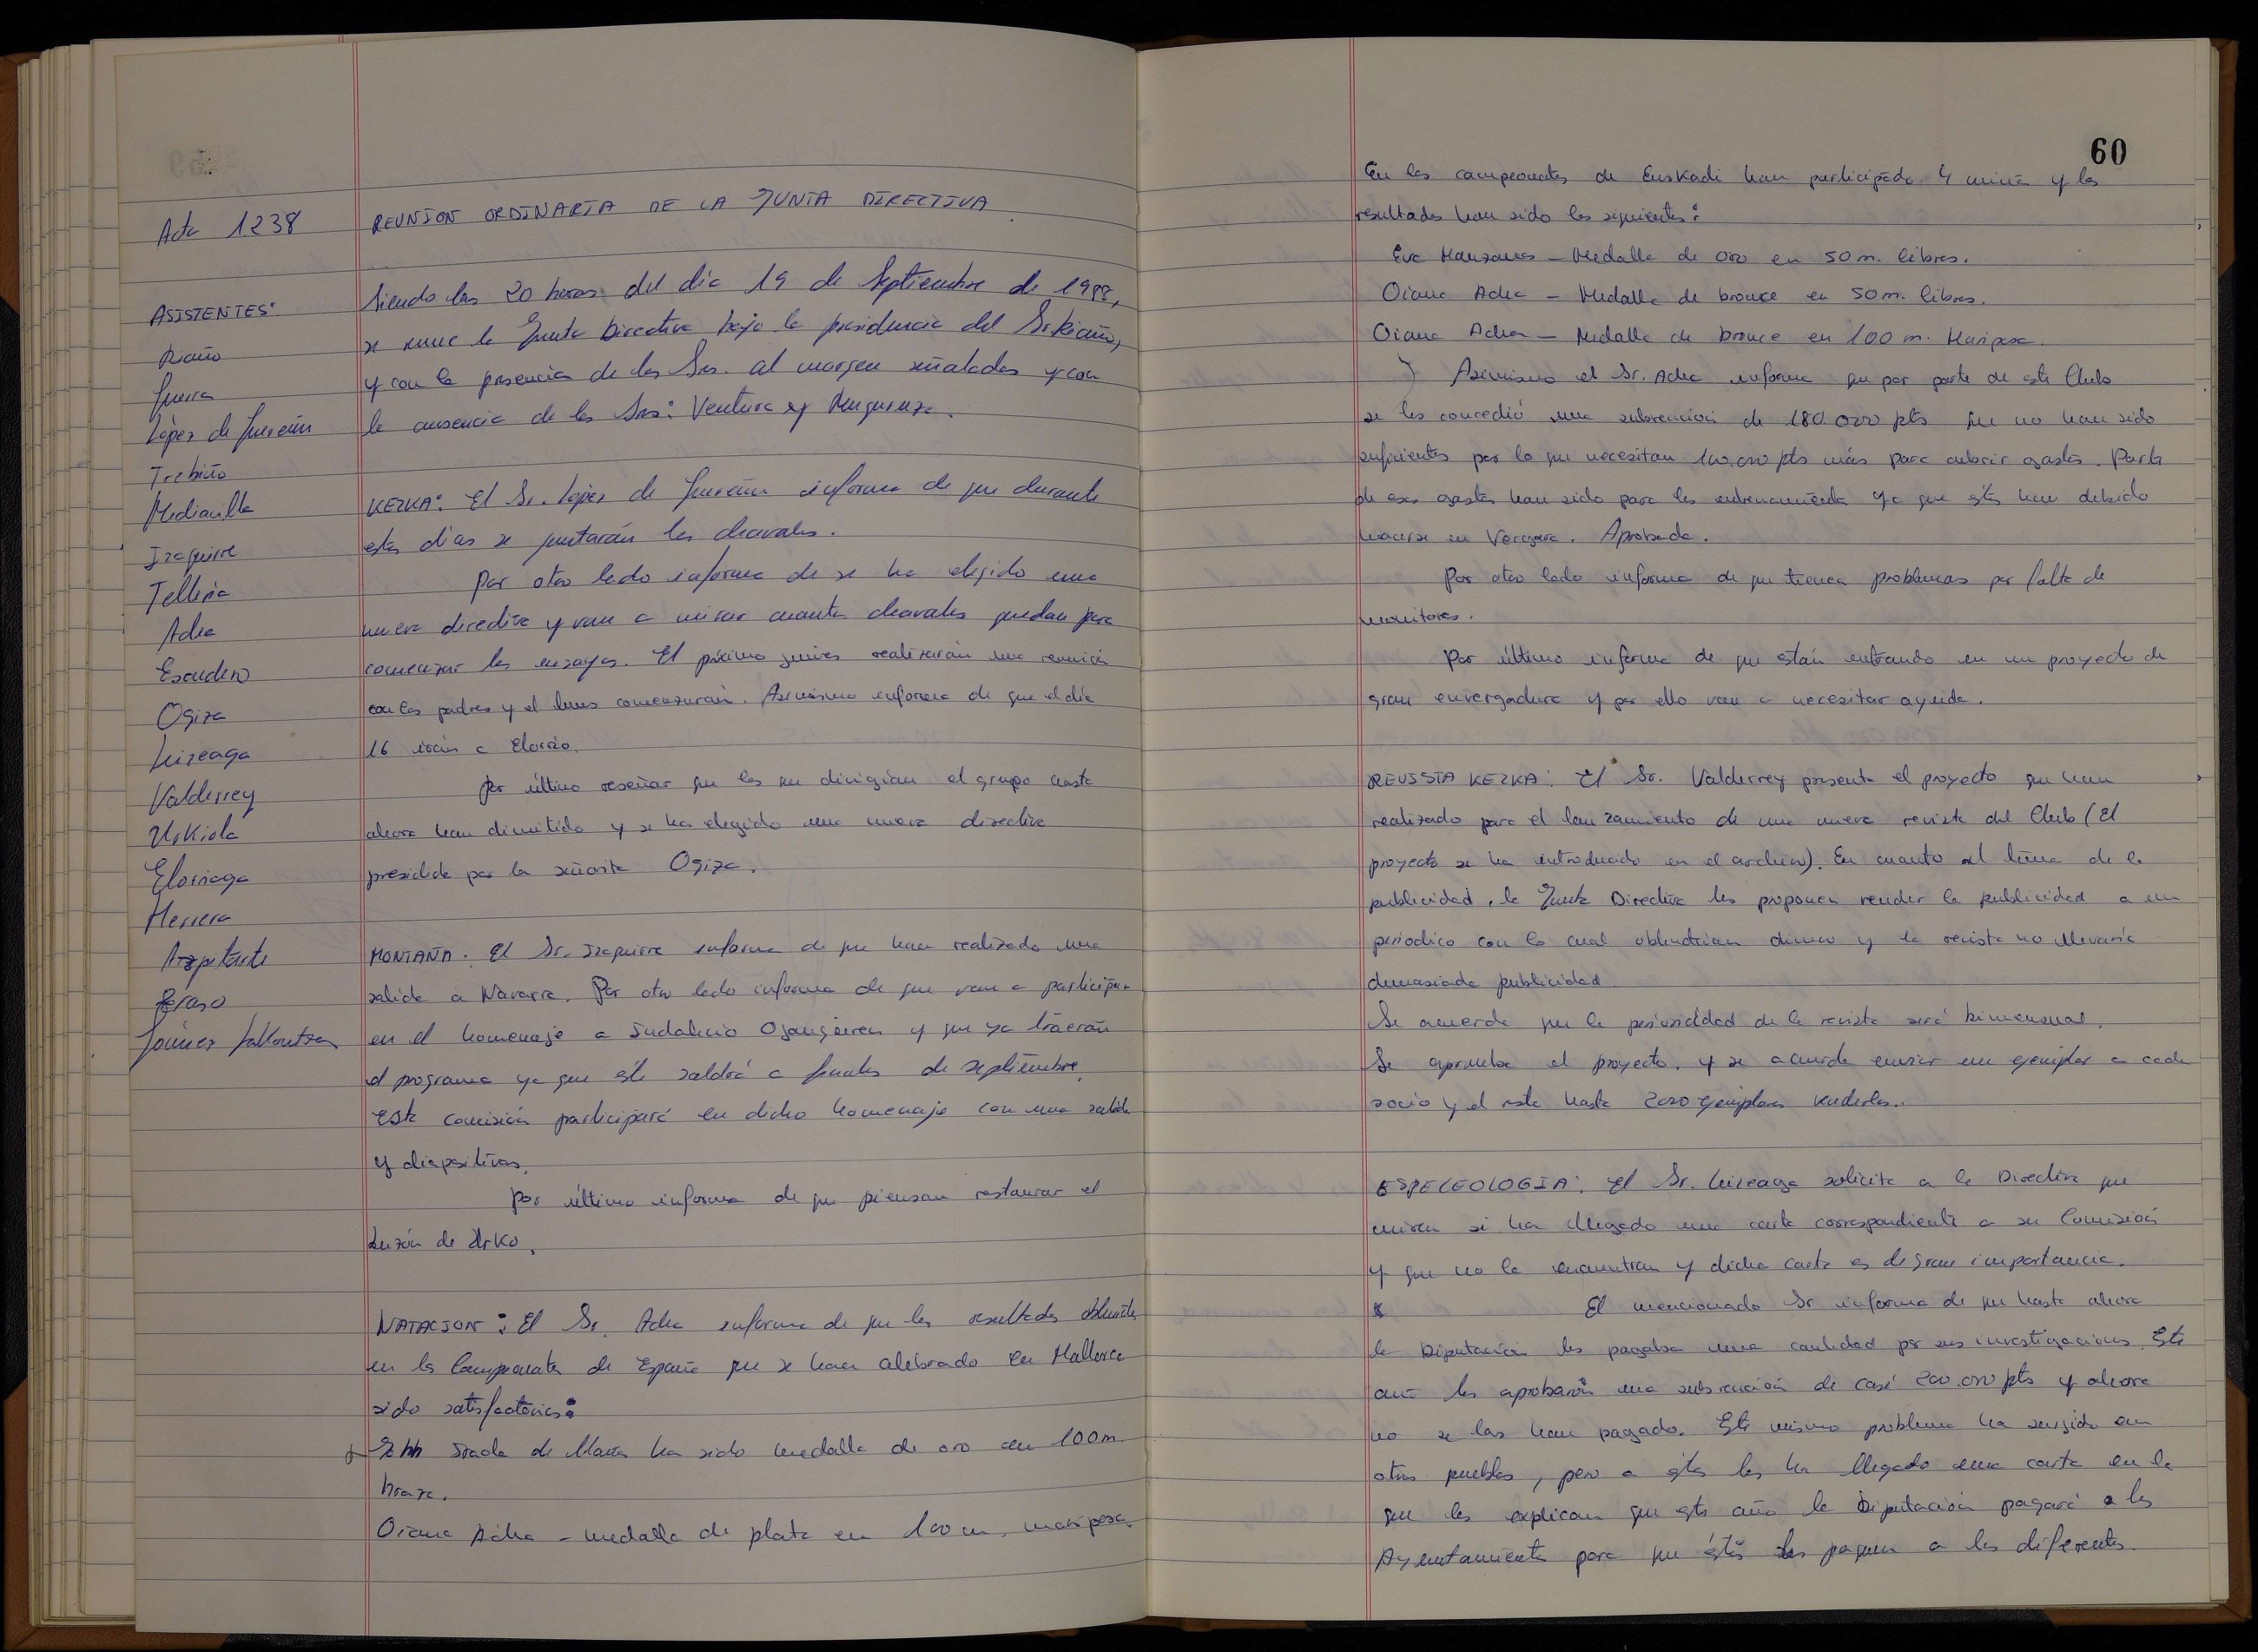 Acta 1238
REUNION ORDINARIA DE LA JUNTA DIRECTIVA
ASISTENTES:
Riaño
Guerra
López de Guereñu
Trebiño
Medianilla
Izaguirre
Telleria
Acha
Escudero
Ogiza
Lizeaga
Valderrey
Urkiola
Elorriaga
Herrera
Azpitarte
Eraso
Siendo las 20 horas del dia 19 de Septiembre de 1988,
se reune la Junta Directiva bajo la presidencia del Sr. Riaño,
y con la presencia de los Srs. al margen señalados y con
la ausencia de los Srs: Ventura y Muguruza.
KEZKA: El Sr. López de Guereñu informa de que durante
estos días se juntarán los chavales.
Por otro lado informa de se ha elegido una
nueva directiva y van a mirar cuantos chavales quedan para
comenzar los ensayos. El próximo jueves realizarán una reunión
con los padres y el lunes comenzarán. Asimismo informa de que el día
16 irán a Elorrio.
Por último reseñar que los que dirigían el grupo hasta
ahora han dimitido y se ha elegido una nueva directiva
presidida por la señorita Ogiza.
MONTAÑA. El Sr. Izaguirre informa de que han realizado una
salida a Navarra. Por otro lado informa de que van a participar
en el homenaje a Indalecio Ojanguren y que ya traerán
el programa ya que éste saldrá a finales de septiembre.
Esta comisión participará en dicho homenaje con una salida
y diapositivas.
Por último informa de que piensan restaurar el
buzón de Urko.
NATACION: El Sr. Acha informa de que los resultados obtenidos
en los Campeonatos de España que se han celebrado en Mallorca
sido satisfactorios:
de María ha sido medalla de oro en 100 m.
braza.
Oiana Acha - medalla de plata en 100 m. mariposa.
60
En los campeonatos de Euskadi han participado 4 niñas y los
resultados han sido los siguientes:
Eva Manzanos - Medalla de oro en 50 m. libres.
Oiana Acha - Medalla de bronce en 50 m. libres.
Oiana Acha - Medalla de bronce en 100 m. Mariposa.
Asimismo el Sr. Acha informa que por parte de este Club
se les concedió una subvención de 180.000 pts que no han sido
suficientes por lo que necesitan 100.000 pts más para cubrir gastos. Parte
de esos gastos han sido para los entrenamientos ya que éstos han debido
hacerse en Vergara. Aprobado.
Por otro lado informa de que tienen problemas por falta de
monitores.
Por último informa de que están entrando en un proyecto de
gran envergadura y por ello van a necesitar ayuda.
REVISTA KEZKA: El Sr. Valderrey presenta el proyecto que han
realizado para el lanzamiento de una nueva revista del Club (El
proyecto se ha introducido en el archivo). En cuanto al tema de la
publicidad, la Junta Directiva les proponen vender la publicidad a un
periodico con lo cual obtendrian dinero y la revista no llevaría
demasiada publicidad.
Se acuerda que la periodicidad de la revista será bimensual.
Se aprueba el proyecto, y se acuerda enviar un ejemplar a cada
socio y el resto hasta 2000 ejemplares venderlos.
ESPELEOLOGIA: El Sr. Lizeaga solicita a la Directiva que
miren si ha llegado una carta correspondiente a su Comisión
y que no la encuentran y dicha carta es de gran importancia.
El mencionado Sr informa de que hasta ahora
la Diputación les pagaba una cantidad por sus investigaciones. Este
año les aprobarón una subvención de casi 200.000 pts y ahora
no se las han pagado. Este mismo problema ha surgido en
otros pueblos, pero a éstos les ha llegado una carta en la
que les explican que este año la Diputación pagará a los
Ayuntamientos para que éstos les paguen a los diferentes